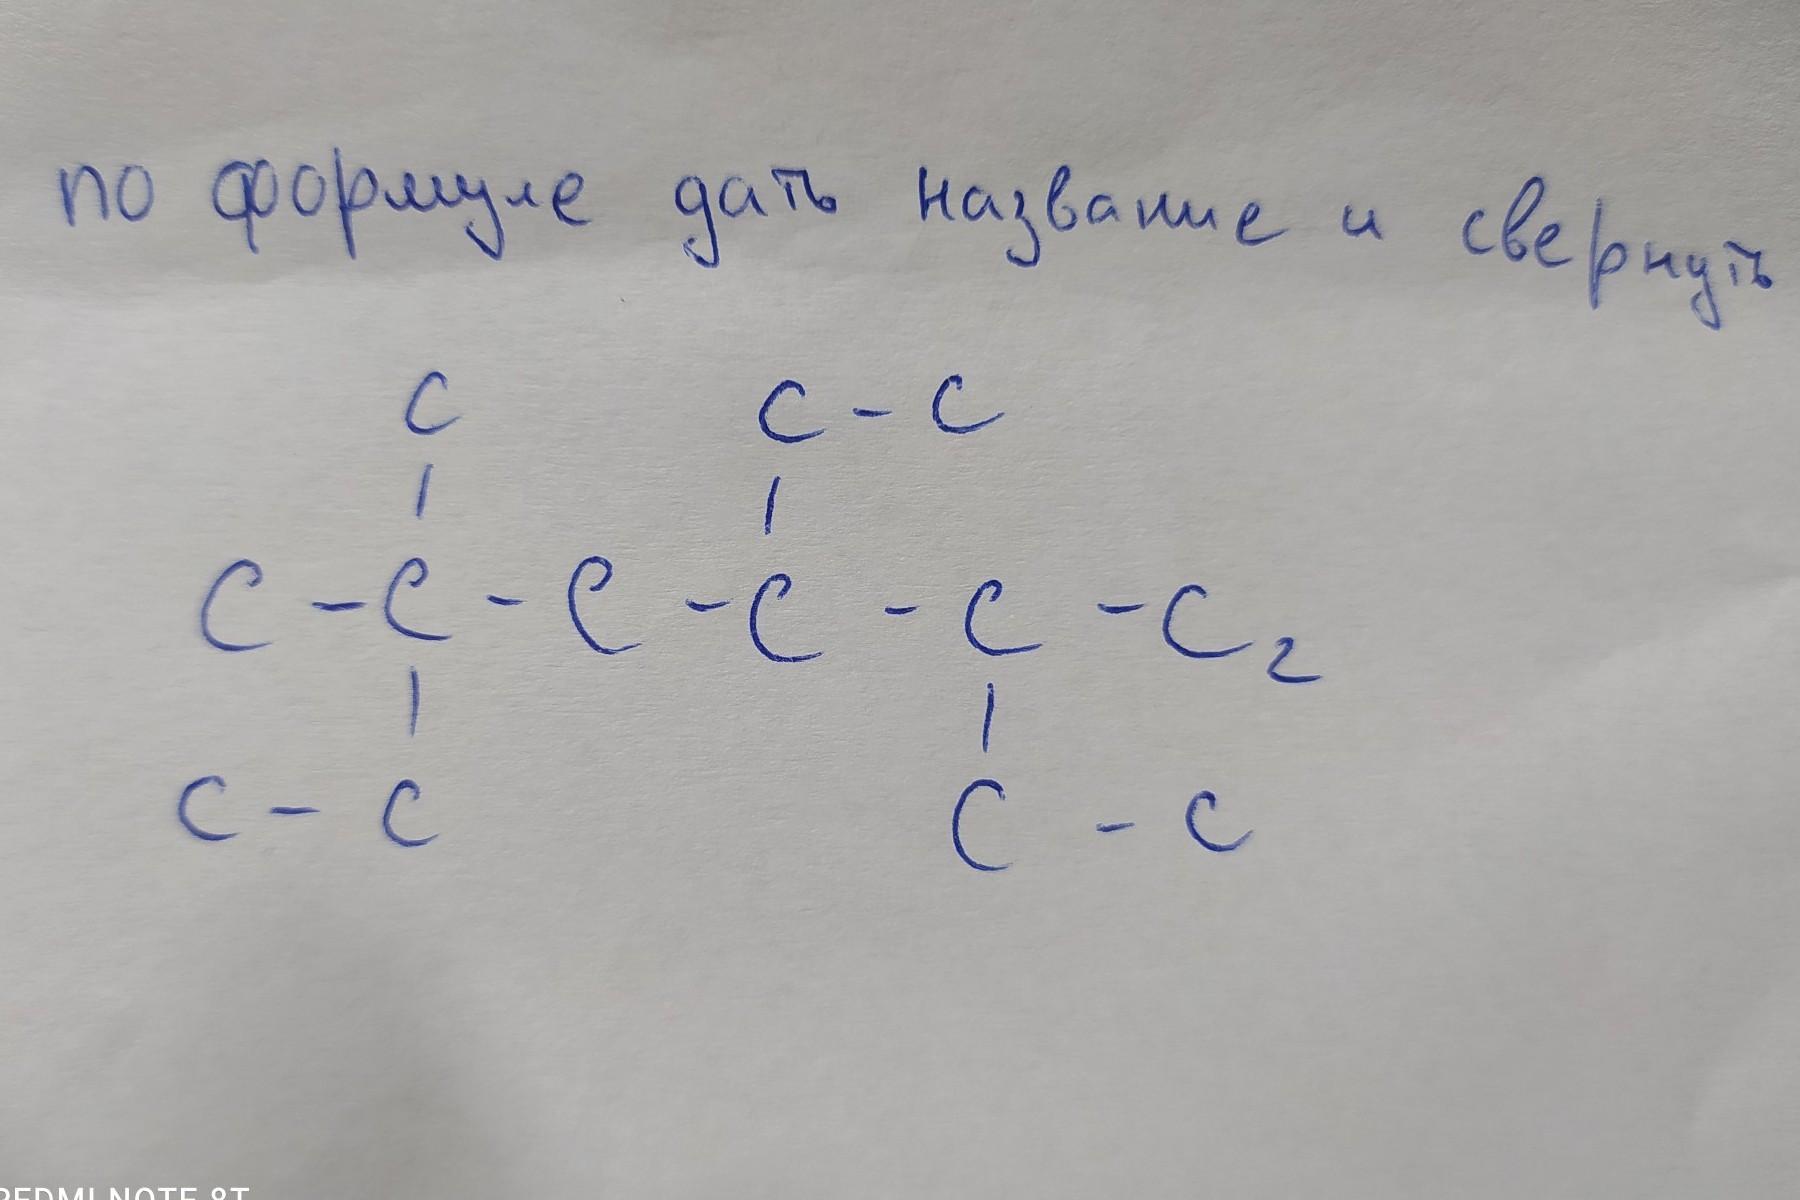 по формуле дать название и свернуть
C C - C
| |
C - C - C - C - C - C2
| |
C - C C - C
REDMI NOTE 8T